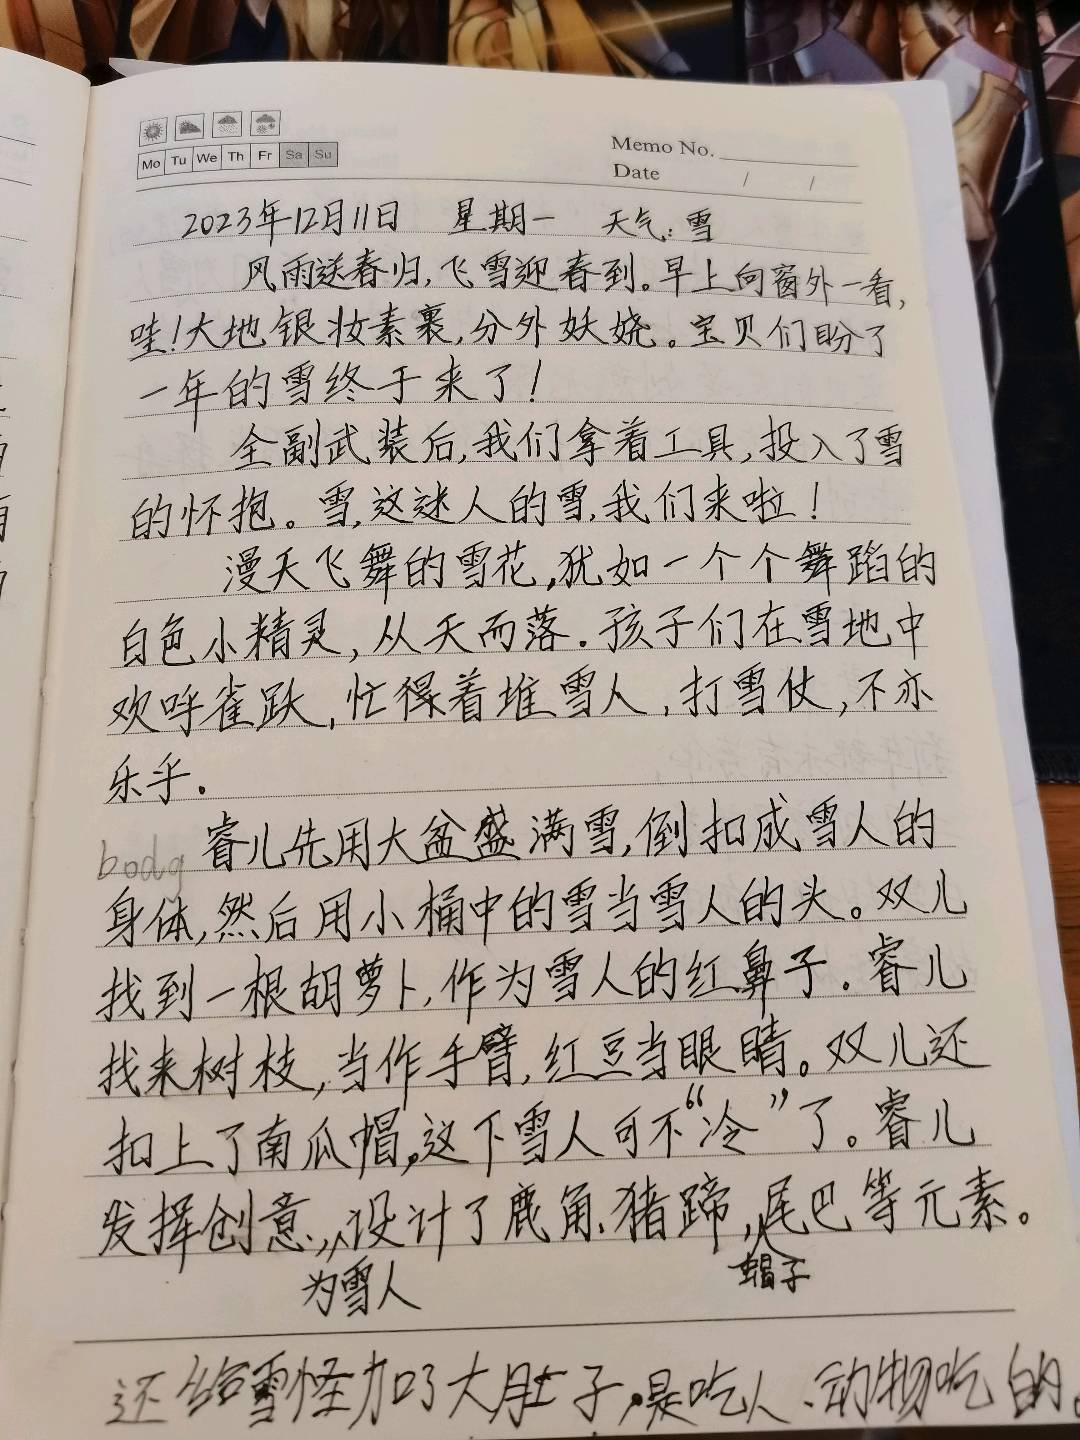 Mo Tu We Th Fr Sa Su
Memo No.
Date / /
2023年12月11日 星期一 天气:雪
风雨送春归,飞雪迎春到。早上向窗外一看,
哇!大地银妆素裹,分外妖娆。宝贝们盼了
一年的雪终于来了!
全副武装后,我们拿着工具,投入了雪
的怀抱。雪,这迷人的雪,我们来啦!
漫天飞舞的雪花,犹如一个个舞蹈的
白色小精灵,从天而落.孩子们在雪地中
欢呼雀跃,忙得着堆雪人,打雪仗,不亦
乐乎.
body 睿儿先用大盆盛满雪,倒扣成雪人的
身体,然后用小桶中的雪当雪人的头。双儿
找到一根胡萝卜,作为雪人的红鼻子.睿儿
找来树枝,当作手臂,红豆当眼睛。双儿还
扣上了南瓜帽,这下雪人可不“冷”了。睿儿
发挥创意,设计了鹿角、猪蹄,尾巴等元素。
为雪人 蝎子
还给雪怪加了大肚子,是吃人、动物吃的。